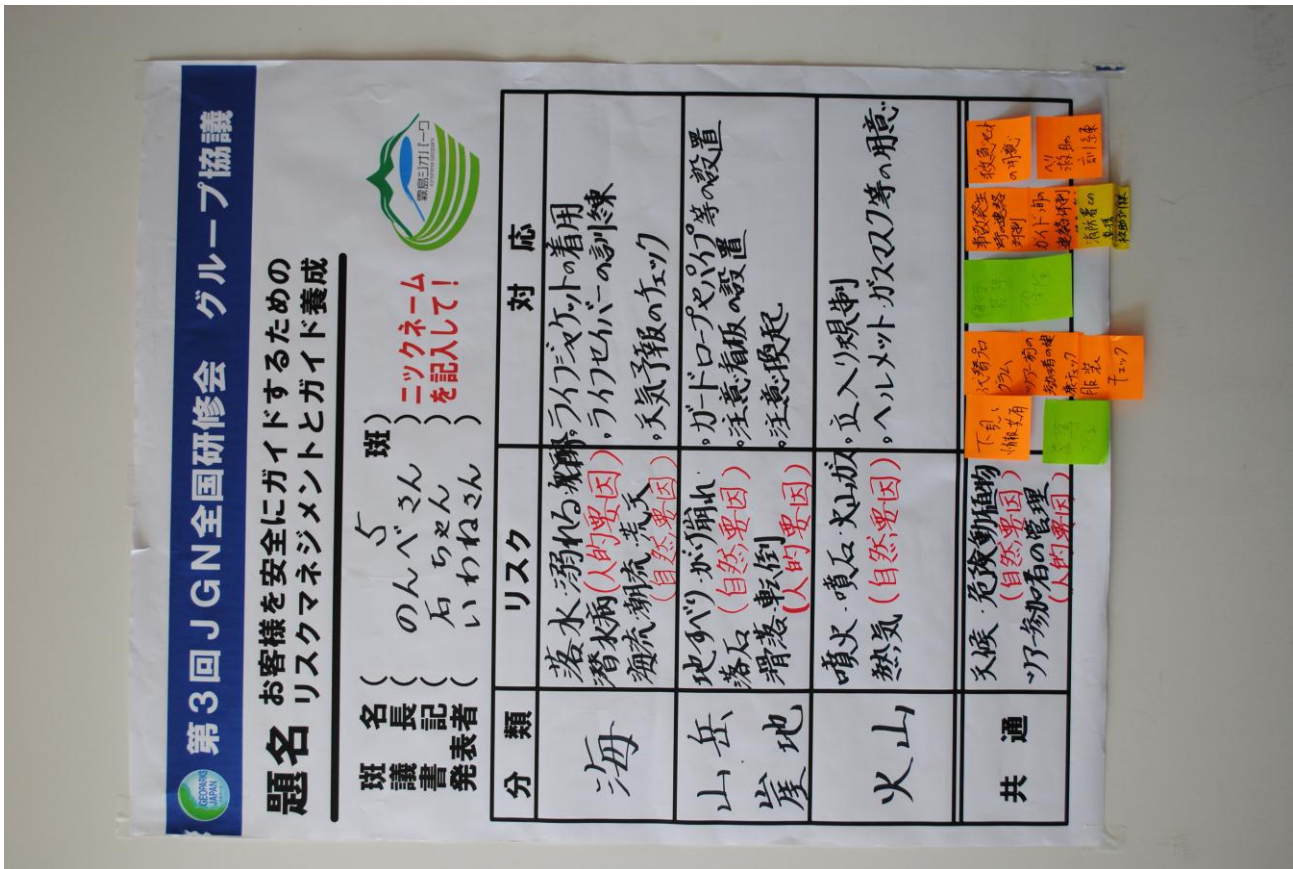 GEOPARKS JAPAN
第3回JGN全国研修会 グループ協議
題名 お客様を安全にガイドするための
リスクマネジメントとガイド養成
班名 ( 5 班 )
議長 ( のんべさん )
書記 ( 石ちゃん )
発表者 ( いわねさん )
ニックネーム
を記入して!
霧島ジオパーク
分類 リスク 対応
海
落水・溺れる
潜水病(人的要因)
海流・潮流・荒天
(自然要因)
。ライフジャケットの着用
。ライフセイバーの訓練
。天気予報のチェック
山岳
崖地
地すべり・がけ崩れ
落石(自然要因)
滑落・転倒
(人的要因)
。ガードロープやパイプ等の設置
。注意看板の設置
。注意喚起
火山
噴火・噴石・火山ガス
熱気(自然要因)
。立入り規制
。ヘルメット・ガスマスク等の用意
共通
天候・危険動植物
(自然要因)
ツアー参加者の管理
(人的要因)
下見・
情報共有
代替プロ
グラム
ツアー前の
参加者の健
康チェック
服装
チェック
保険
事故発生
時の連絡
体制
ガイド間の
連絡体制
消防署との
連携
救助訓練
救急セット
の用意
ヘリ救助の
訓練